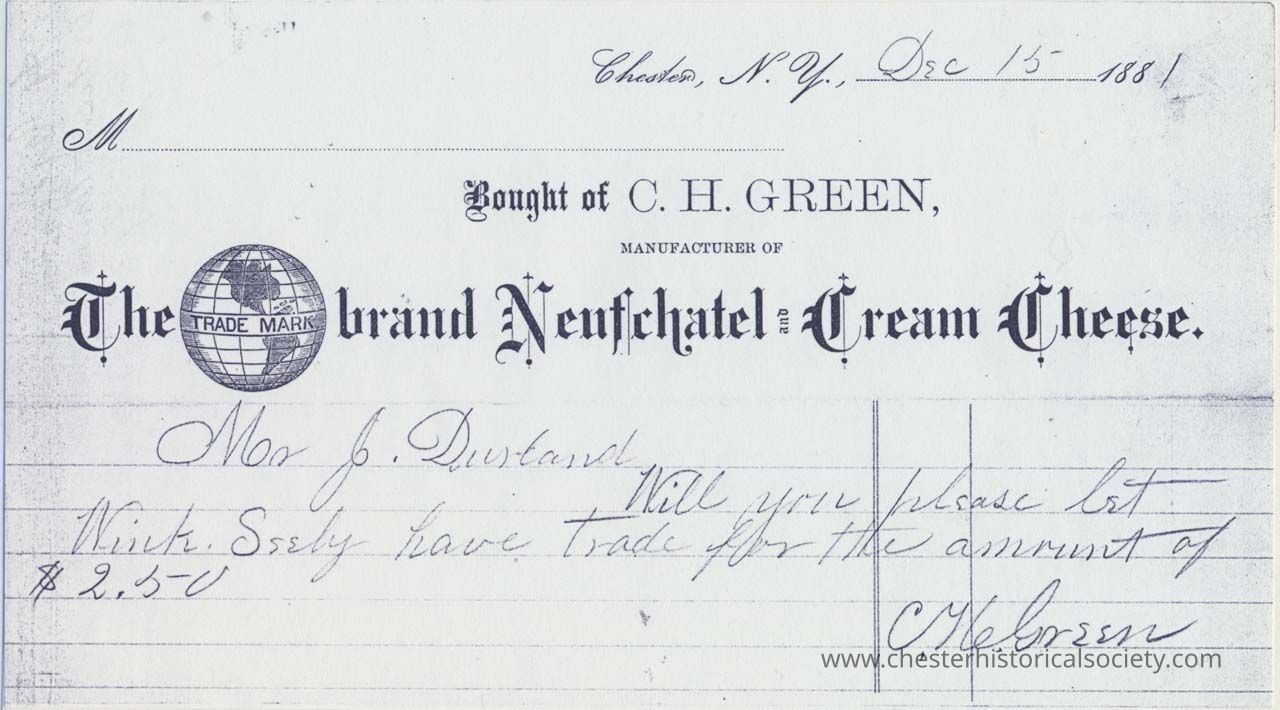 Chester, N. Y., Dec 15 1881
M
Bought of C. H. GREEN,
MANUFACTURER OF
The TRADE MARK brand Neufschatel and Cream Cheese.
Mr J. Durland
Will you please let
Wink. Seely have trade for the amount of
$ 2.50
C H Green
www.chesterhistoricalsociety.com